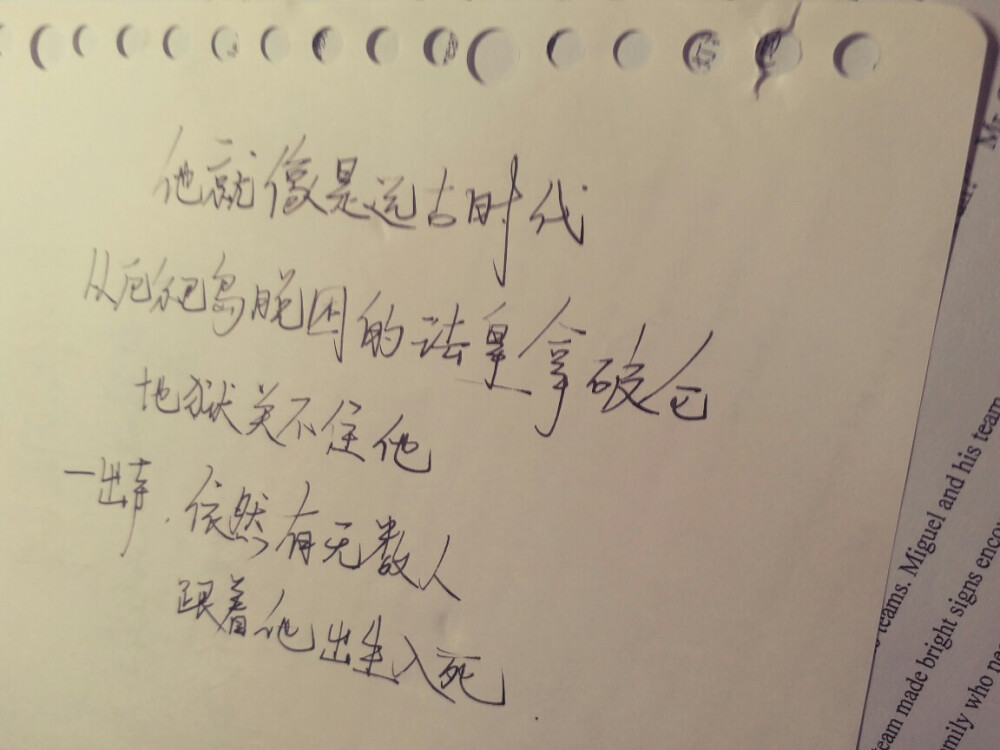 他就像是远古时代
从厄尔巴岛脱困的法皇拿破仑
地狱关不住他
一出声，依然有无数人
跟着他出生入死
teams. Miguel and his team
team made bright signs
mily who